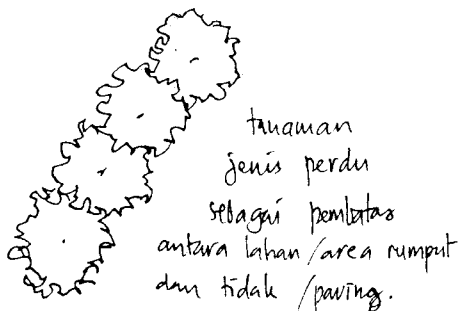 tanaman
jenis perdu
sebagai pembatas
antara lahan/area rumput
dan tidak /paving.